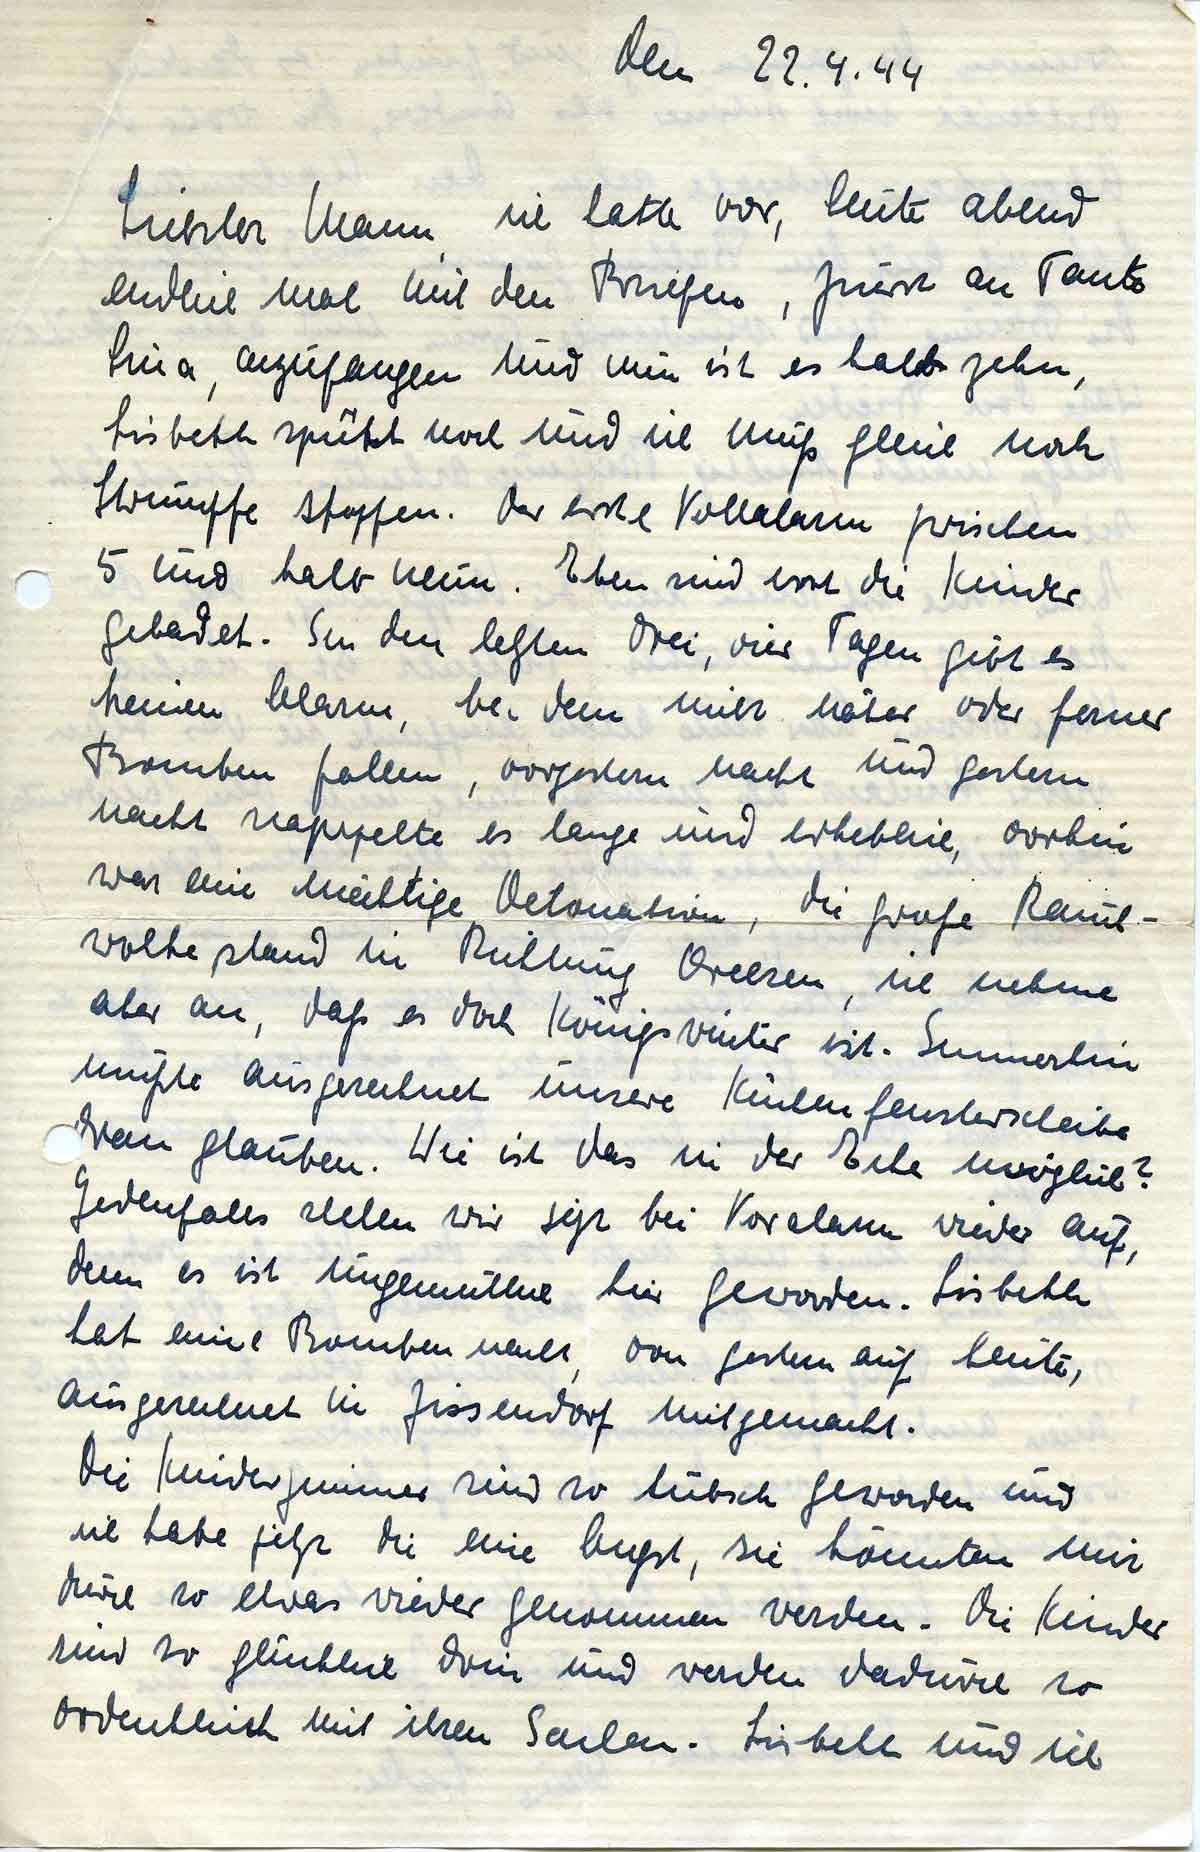 Den 22.4.44
Liebster Mann, ich hatte vor, heute abend
endlich mal mit den Briefen, zuerst an Tante
Lina, anzufangen und nun ist es halb zehn,
Lisbeth spühlt noch und ich muß gleich noch
Strümpfe stopfen. Der erste Vollalarm zwischen
5 und halb neun. Eben sind erst die Kinder
gebadet. In den letzten drei, vier Tagen gibt es
keinen Alarm, bei dem nicht näher oder ferner
Bomben fallen, vorgestern nacht und gestern
nacht rappelte es lange und erheblich, vorhin
war eine mächtige Detonation, die große Rauch-
wolke stand in Richtung Dreesen, ich nehme
aber an, daß es doch Königswinter ist. Immerhin
mußte ausgerechnet unsere Küchenfensterscheibe
dran glauben. Wie ist das in der Ecke möglich?
Jedenfalls stehen wir jetzt bei Voralarm wieder auf,
denn es ist ungemütlich hier geworden. Lisbeth
hat eine Bombennacht, von gestern auf heute,
ausgerechnet in Zissendorf mitgemacht.
Die Kinderzimmer sind so hübsch geworden und
ich habe jetzt die eine Angst, sie könnten mir
durch so etwas wieder genommen werden. Die Kinder
sind so glücklich drin und werden dadurch so
ordentlich mit ihren Sachen. Lisbeth und ich